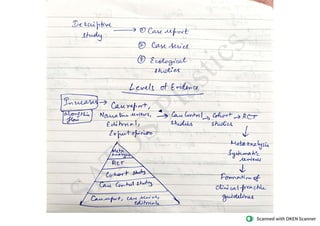 Descriptive study → ① Case report
② Case series
③ Ecological studies
Levels of Evidence
Increases → Case report, Narrative reviews, Editorials, Expert opinion → Case Control studies → Cohort studies → RCT
↓
Meta analysis
Systematic reviews
↓
Formation of clinical practice guidelines
Meta analysis
RCT
Cohort study
Case Control study
Case report, case series, editorials
Scanned with OKEN Scanner